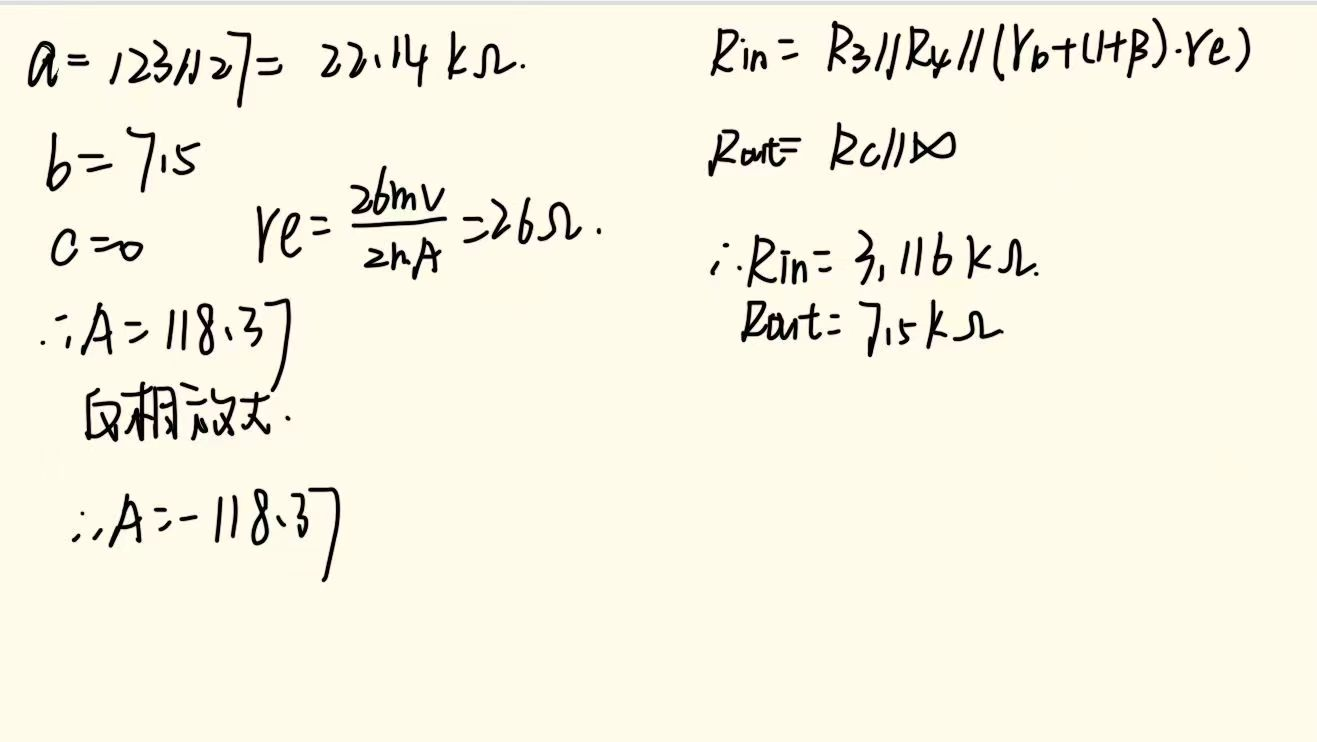 a = 123//27 = 22.14 kΩ.
b = 7.5
c = 0
re = 26mV / 2mA = 26Ω.
∴ A = 118.37
反相放大.
∴ A = -118.37
Rin = R3//R4//(rb+(1+β)·re)
Rout = Rc//∞
∴ Rin = 3.116 kΩ.
Rout = 7.5kΩ